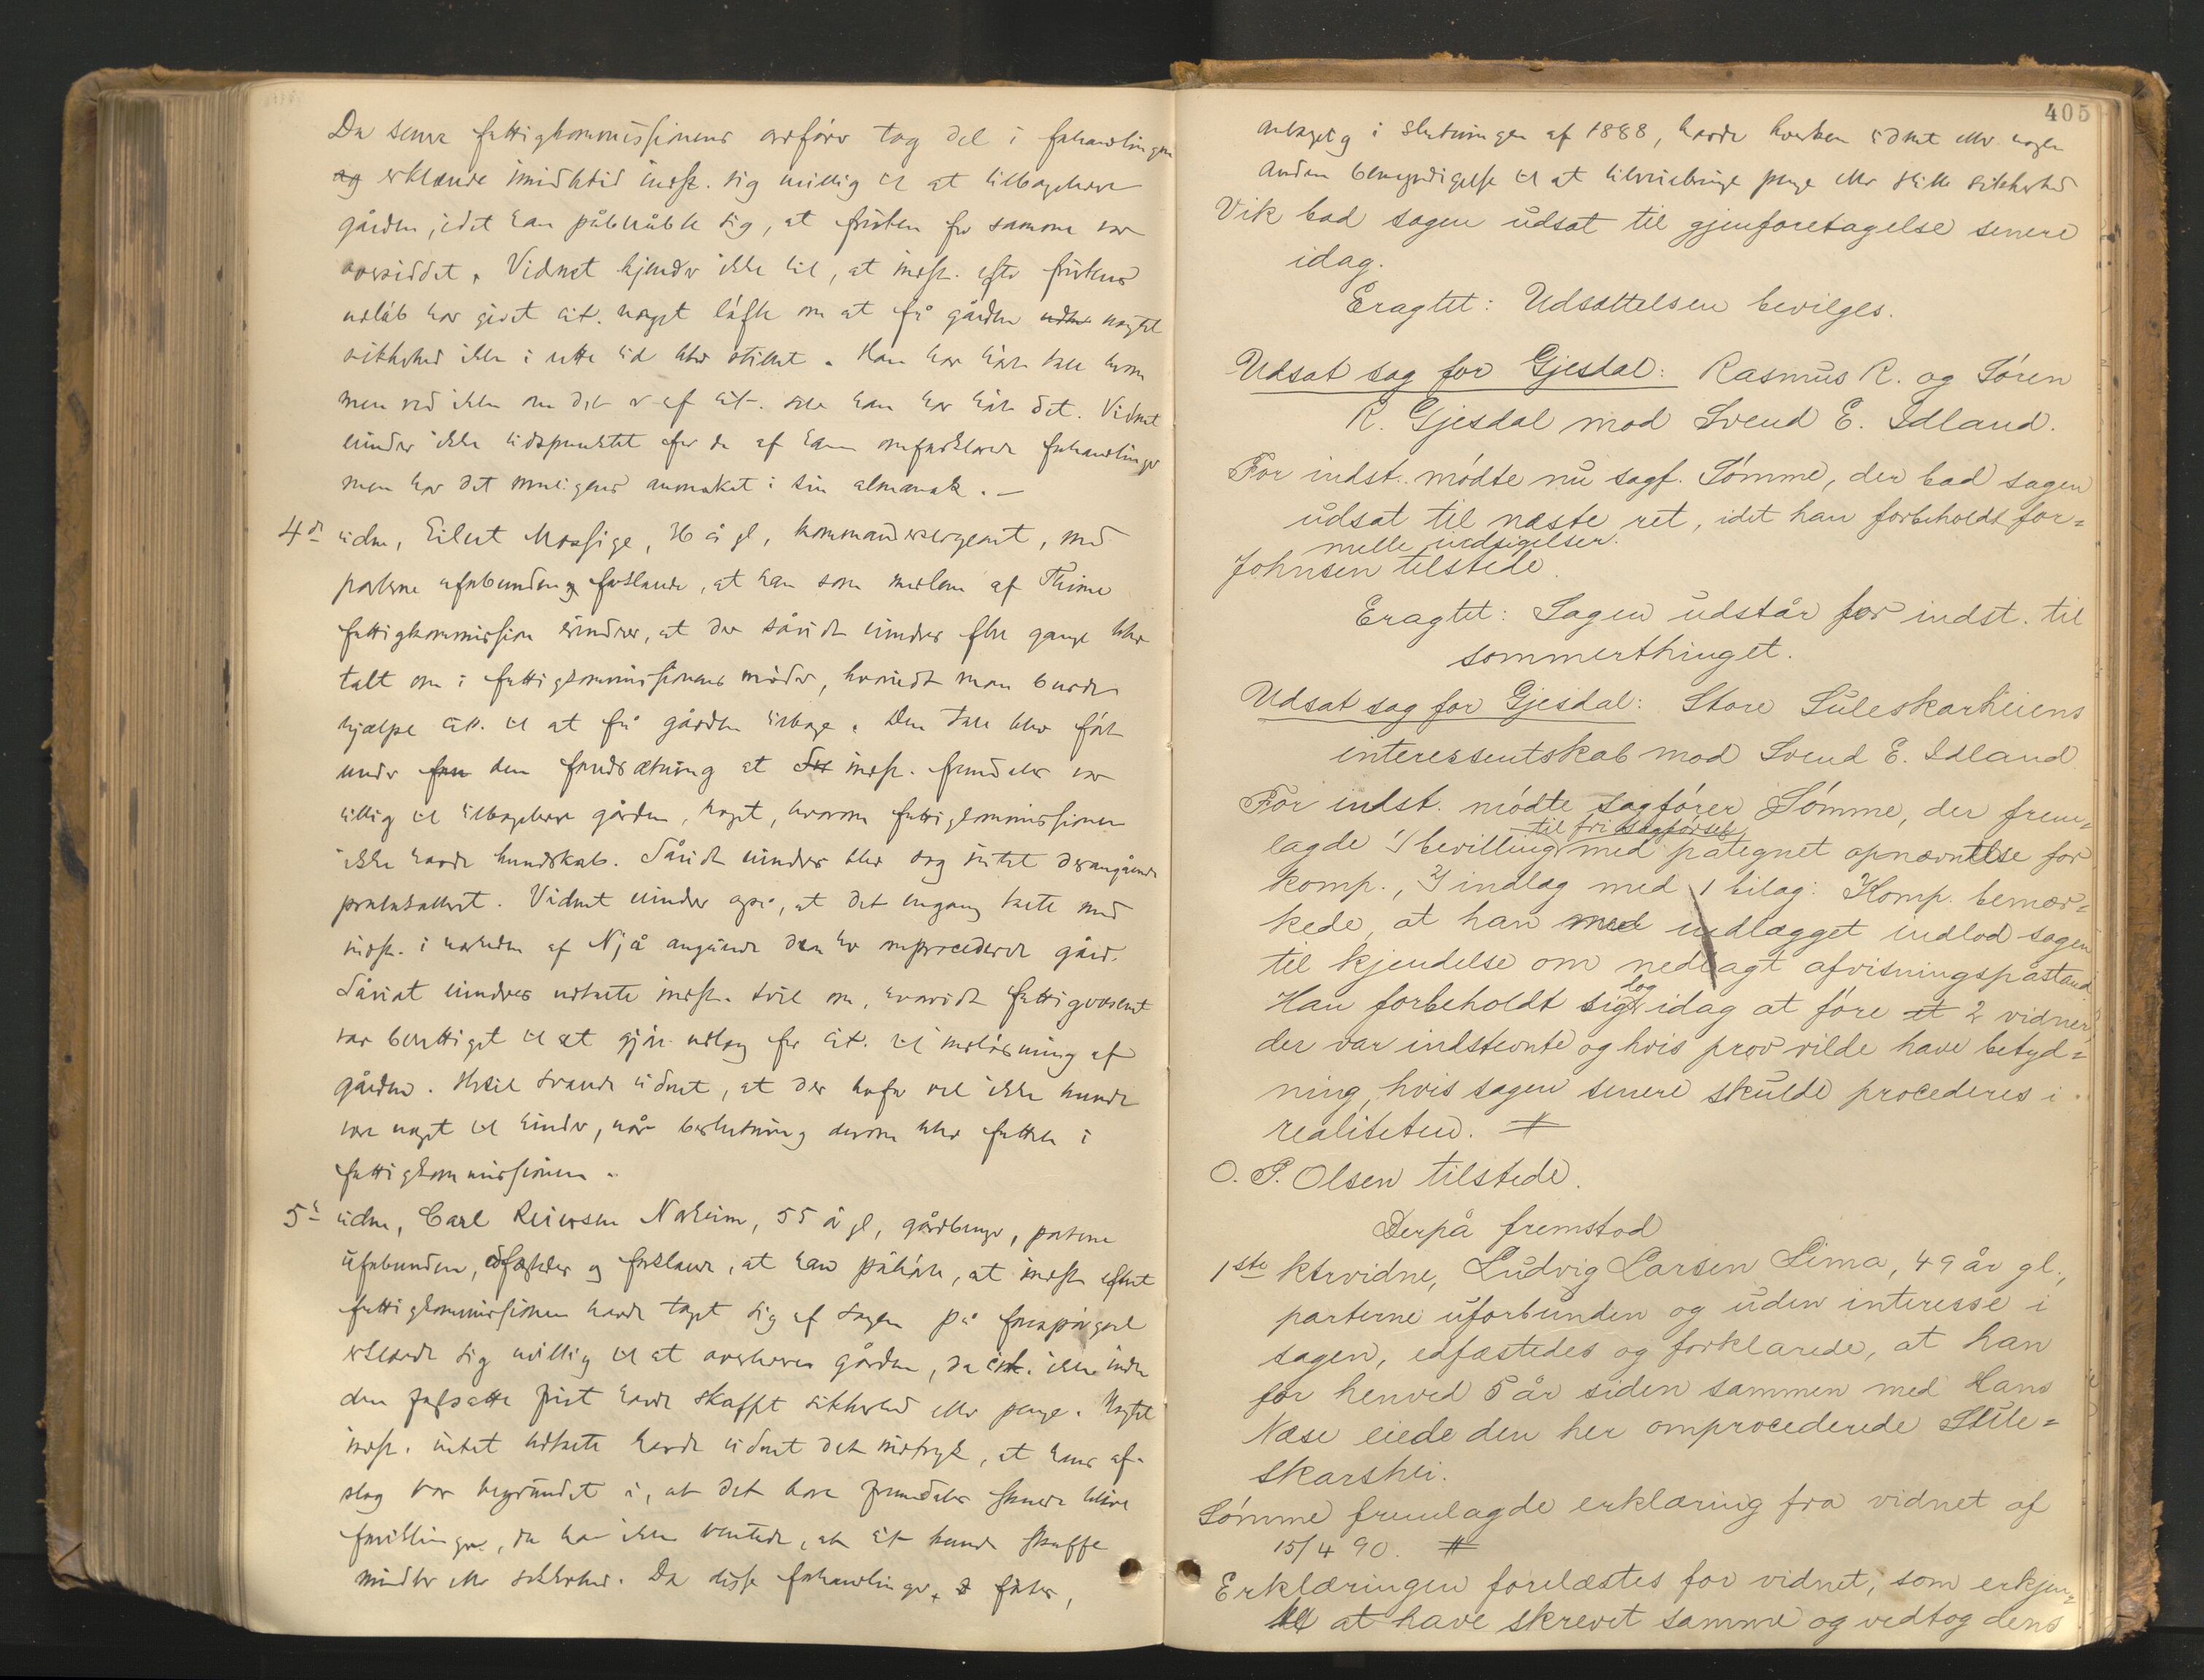 Da senere fattigkommissionens ordfører tog del i forhandlingen
og erklærede imidlertid indst. sig uvillig til at tilbagelevere
gården, idet han påberåbte sig, at fristen for samme var
oversiddet. Vidnet kjender ikke til, at indst. efter fristens
udløb har givet cit. noget løfte om at få gården uden uagtet
sikkerhed ikke i rette tid blev stillet. Han har hørt tale herom
men ved ikke om det er af cit. selv han har hørt det. Vidnet
erindrer ikke tidspunktet for de af ham omforklarede forhandlinger
men har det muligens anmerket i sin almanak. —
4de vidne, Eilert Mossige, 36 år gl, kommandersergeant, med
parterne uforbunden forklarede, at han som medlem af Thime
fattigkommission erindrer, at der såvidt erindres flere gange blev
talt om i fattigkommissionens møder, hvorvidt man burde
hjælpe cit. til at få gården tilbage. Den tale blev ført
under den forudsætning at indst. fremdeles var
villig til tilbagelevere gården, noget, hvorom fattigkommissionen
ikke havde kundskab. Såvidt erindres blev dog intet derangående
protokolleret. Vidnet erindrer også, at det engang talte med
indst. i nærheden af Njå angående den her omprocederede gård.
Såvidt erindres udtalte indst. tvil om, hvorvidt fattigvæsenet
var berettiget til at gjøre udlæg for cit. til indløsning af
gården. Hertil svarede vidnet, at der herfor vel ikke kunde
være noget til hinder, når beslutning derom blev fattet i
fattigkommissionen.
5te vidne, Carl Reiersen Nærheim, 55 år gl, gårdbruger, parterne
uforbunden, edfæstedes og forklarede, at han påhørte, at indst. efterat
fattigkommissionen havde taget sig af sagen på forespørgsel
erklærede sig uvillig til at overlevere gården, da cit. ikke inden
den fastsatte frist havde skaffet sikkerhed eller penge. Uagtet
indst. intet udtalte havde vidnet det indtryk, at hans af-
slag var begrundet i, at det bare fremdeles skulde blive
forviklinger, da han ikke ventede, at cit. kunde skaffe
midler eller sikkerhed. Da disse forhandlinger førtes,
405
antagelig i slutningen af 1888, havde hverken vidnet eller nogen
anden bemyndigelse til at tilveiebringe penge eller stille sikkerhed
Vik bad sagen udsat til gjenforetagelse senere
idag.
Eragtet: Udsættelsen bevilges.
Udsat sag for Gjesdal: Rasmus R. og Søren
R. Gjesdal mod Svend E. Idland.
For indst. mødte nu sagf. Sømme, der bad sagen
udsat til næste ret, idet han forbeholdt for=
melle indsigelser.
Johnsen tilstede.
Eragtet: Sagen udstår for indst. til
sommerthinget.
Udsat sag for Gjesdal: Store Suleskarheiens
interessentskab mod Svend E. Idland
For indst. mødte sagfører Sømme, der frem=
til fri sagførsel
lagde 1/ bevilling med påtegnet opnævnelse for
komp., 2/ indlæg med 1 bilag: Komp. bemær=
kede, at han med indlægget indlod sagen
til kjendelse om nedlagt afvisningspåstand.
dog
Han forbeholdt sig idag at føre et 2 vidner,
der var indstevnte og hvis prov vilde have betyd=
ning, hvis sagen senere skulde procederes i
realiteten. #
O. P. Olsen tilstede.
Derpå fremstod
1ste ktrvidne, Ludvig Larsen Lima, 49 år gl.,
parterne uforbunden og uden interesse i
sagen, edfæstedes og forklarede, at han
for henved 5 år siden sammen med Hans
Næse eiede den her omprocederede Sule=
skarshei.
Sømme fremlagde erklæring fra vidnet af
15/4 90. #
Erklæringen forelæstes for vidnet, som erkjen=
te at have skrevet samme og vedtog dens